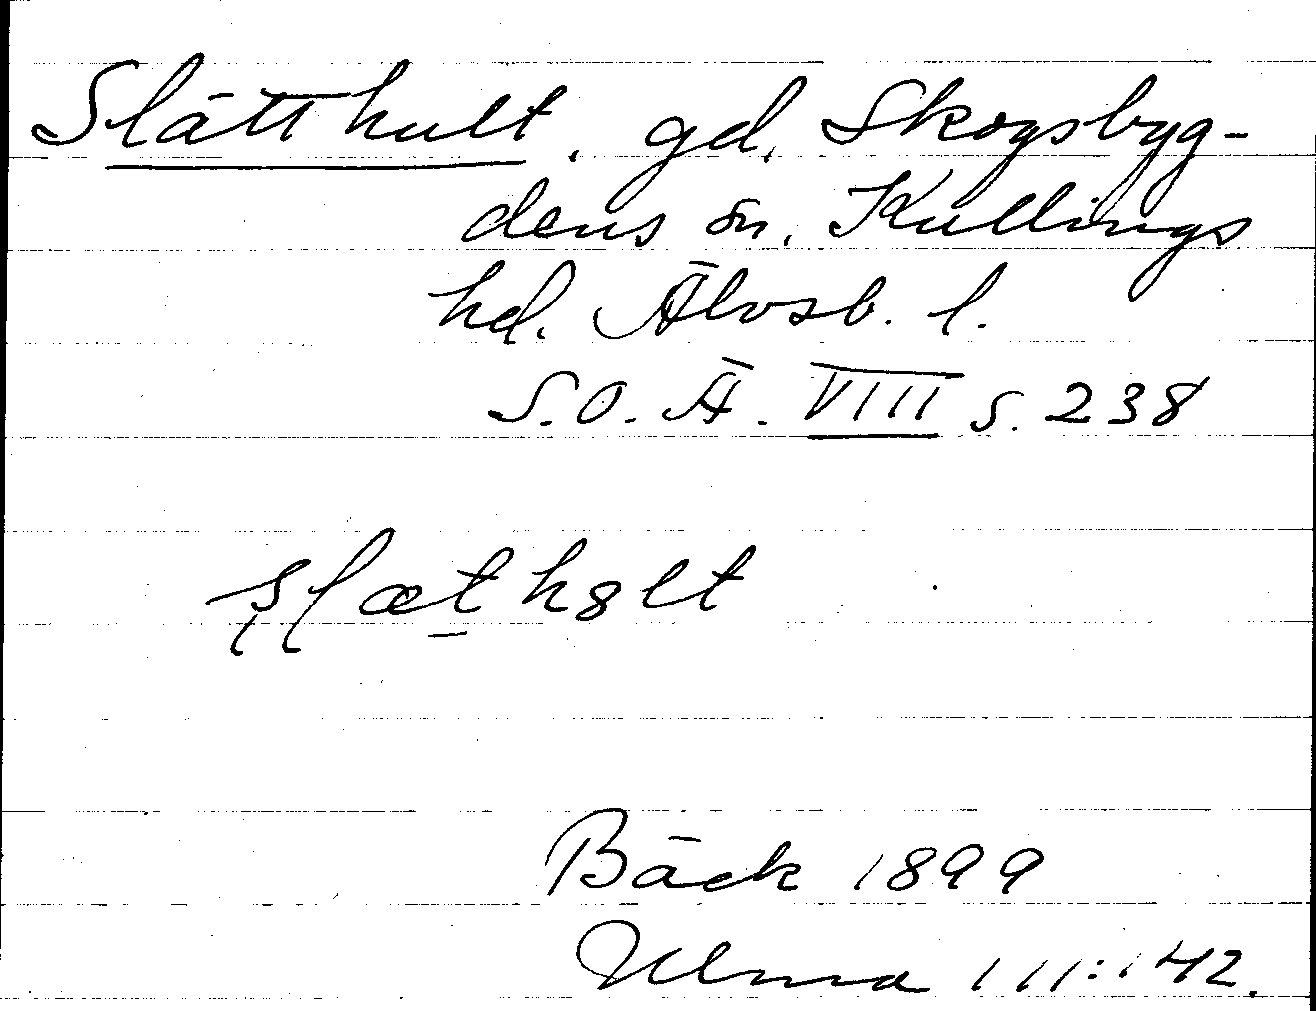 Slätthult, gd, Skogsbyg-
dens sn. Kullings
hd. Älvsb. l.
S.O.Ä. VIII s. 238
Bäck 1899
Ulma 111:142.